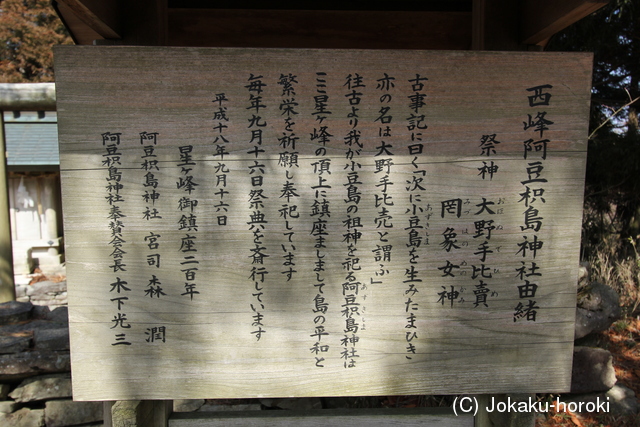 西峰阿豆枳島神社由緒
祭神 大野手比賣
おほぬでひめ
罔象女神
みづはのめのかみ
古事記に曰く「次に小豆島を生みたまひき
あずきしま
亦の名は大野手比売と謂ふ」
往古より我が小豆島の祖神を祀る阿豆枳島神社は
あずきしま
ここ星ヶ峰の頂上に鎮座ましまして島の平和と
繁栄を祈願し奉祀しています
毎年九月十六日祭典を斎行しています
平成十八年九月十六日
星ヶ峰御鎮座二百年
阿豆枳島神社 宮司 森 潤
阿豆枳島神社奉賛会会長 木下光三
(C) Jokaku-horoki